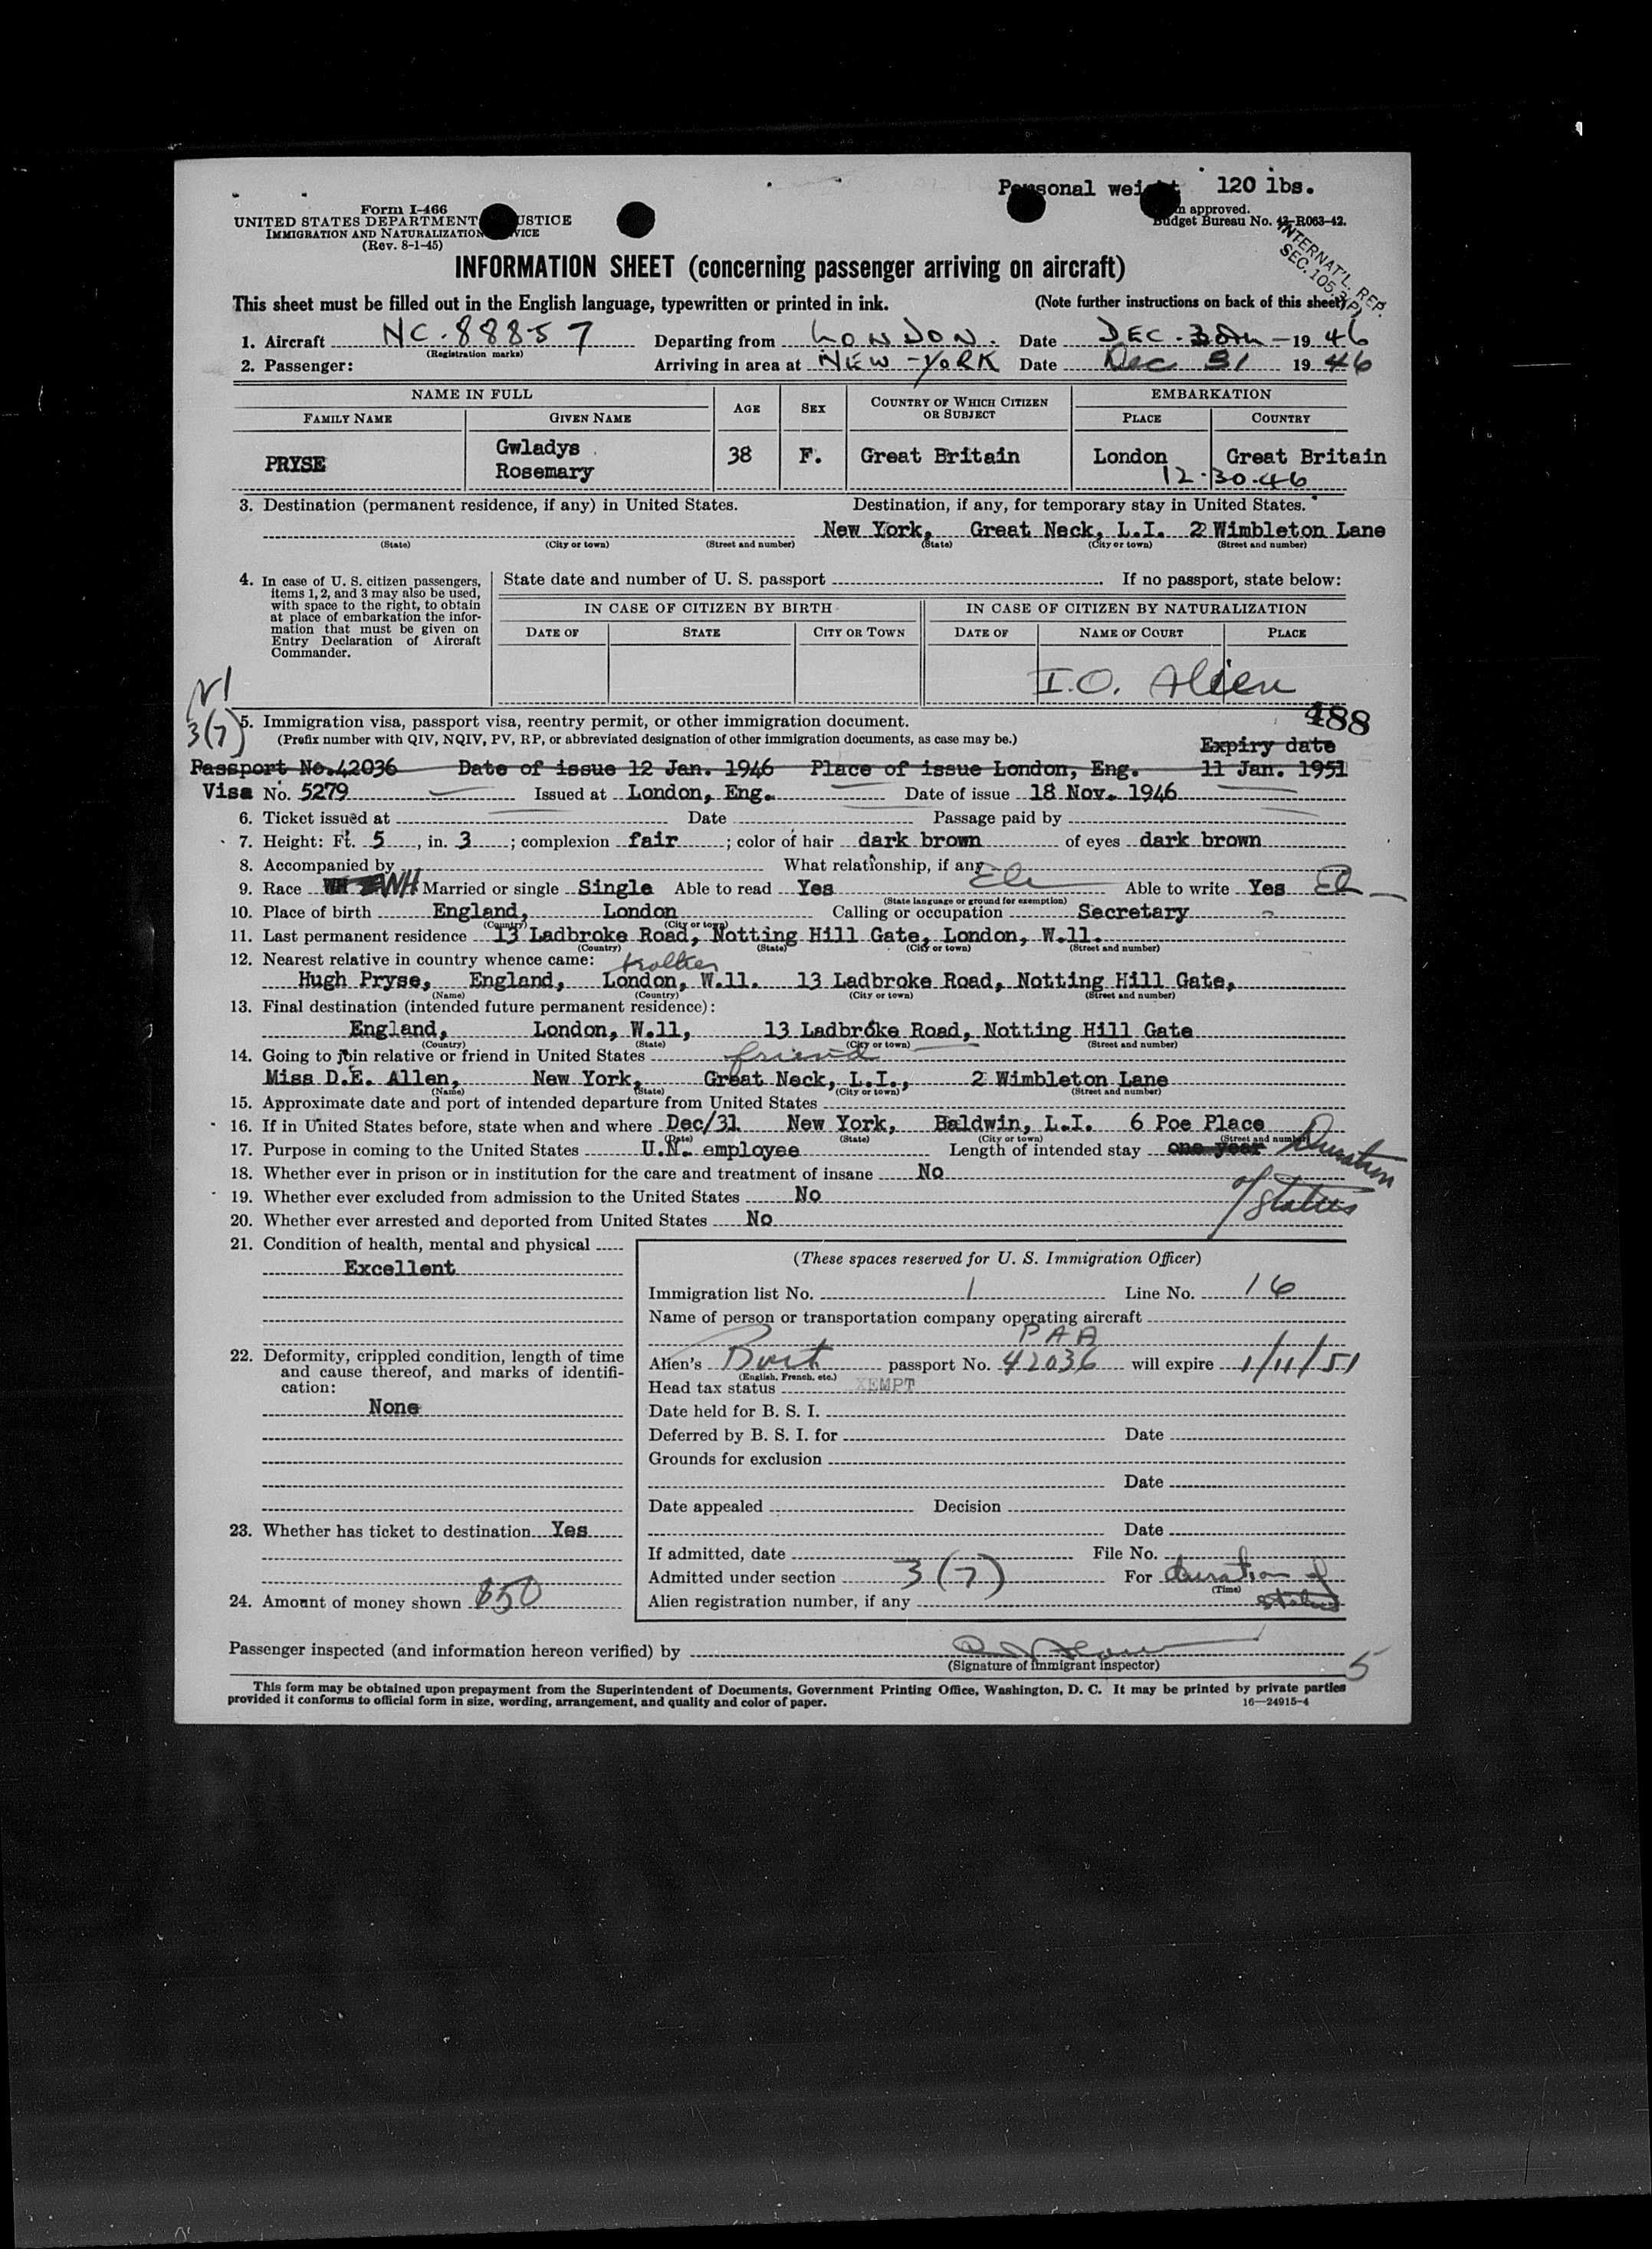 Personal weight 120 lbs.
Form I-466
UNITED STATES DEPARTMENT JUSTICE
IMMIGRATION AND NATURALIZATION SERVICE
(Rev. 8-1-45)
approved.
Budget Bureau No. 43-R063-42.
INTERNAT'L. REP.
SEC. 105.3(P)
INFORMATION SHEET (concerning passenger arriving on aircraft)
This sheet must be filled out in the English language, typewritten or printed in ink. (Note further instructions on back of this sheet)
1. Aircraft NC-88857 Departing from LONDON. Date DEC. 30th - 1946
(Registration marks)
2. Passenger: Arriving in area at NEW-YORK Date Dec 31 1946
NAME IN FULL AGE SEX COUNTRY OF WHICH CITIZEN OR SUBJECT EMBARKATION
FAMILY NAME GIVEN NAME PLACE COUNTRY
PRYSE Gwladys Rosemary 38 F. Great Britain London Great Britain
12-30-46
3. Destination (permanent residence, if any) in United States. Destination, if any, for temporary stay in United States.
New York, Great Neck, L.I. 2 Wimbleton Lane
(State) (City or town) (Street and number) (State) (City or town) (Street and number)
4. In case of U. S. citizen passengers, items 1, 2, and 3 may also be used, with space to the right, to obtain at place of embarkation the information that must be given on Entry Declaration of Aircraft Commander.
State date and number of U. S. passport If no passport, state below:
IN CASE OF CITIZEN BY BIRTH IN CASE OF CITIZEN BY NATURALIZATION
DATE OF STATE CITY OR TOWN DATE OF NAME OF COURT PLACE
I.O. Alien
488
3(7)
5. Immigration visa, passport visa, reentry permit, or other immigration document.
(Prefix number with QIV, NQIV, PV, RP, or abbreviated designation of other immigration documents, as case may be.)
Expiry date
Passport No.42036 Date of issue 12 Jan. 1946 Place of issue London, Eng. 11 Jan. 1951
Visa No. 5279 Issued at London, Eng. Date of issue 18 Nov. 1946
6. Ticket issued at Date Passage paid by
7. Height: Ft. 5, in. 3; complexion fair; color of hair dark brown of eyes dark brown
8. Accompanied by What relationship, if any
9. Race WH Married or single Single Able to read Yes Able to write Yes
(State language or ground for exemption)
10. Place of birth England, London Calling or occupation Secretary
(Country) (City or town)
11. Last permanent residence 13 Ladbroke Road, Notting Hill Gate, London, W.11.
(Country) (State) (City or town) (Street and number)
12. Nearest relative in country whence came:
Hugh Pryse, England, London, W.11. 13 Ladbroke Road, Notting Hill Gate,
(Name) (Country) (City or town) (Street and number)
13. Final destination (intended future permanent residence):
England, London, W.11, 13 Ladbroke Road, Notting Hill Gate
(Country) (State) (City or town) (Street and number)
14. Going to join relative or friend in United States friend
Miss D.E. Allen, New York, Great Neck, L.I., 2 Wimbleton Lane
(Name) (State) (City or town) (Street and number)
15. Approximate date and port of intended departure from United States
16. If in United States before, state when and where Dec/31 New York, Baldwin, L.I. 6 Poe Place
(Date) (State) (City or town) (Street and number)
17. Purpose in coming to the United States U.N. employee Length of intended stay one year Duration of status
18. Whether ever in prison or in institution for the care and treatment of insane No
19. Whether ever excluded from admission to the United States No
20. Whether ever arrested and deported from United States No
21. Condition of health, mental and physical
Excellent
22. Deformity, crippled condition, length of time and cause thereof, and marks of identification:
None
23. Whether has ticket to destination Yes
24. Amount of money shown $50
(These spaces reserved for U. S. Immigration Officer)
Immigration list No. 1 Line No. 16
Name of person or transportation company operating aircraft
PAA
Alien's Brit passport No. 42036 will expire 1/11/51
(English, French, etc.)
Head tax status XEMPT
Date held for B. S. I.
Deferred by B. S. I. for Date
Grounds for exclusion
Date
Date appealed Decision
Date
If admitted, date File No.
Admitted under section 3(7) For duration of status
(Time)
Alien registration number, if any
Passenger inspected (and information hereon verified) by
(Signature of immigrant inspector)
5
This form may be obtained upon prepayment from the Superintendent of Documents, Government Printing Office, Washington, D. C. It may be printed by private parties
provided it conforms to official form in size, wording, arrangement, and quality and color of paper. 16—24915-4